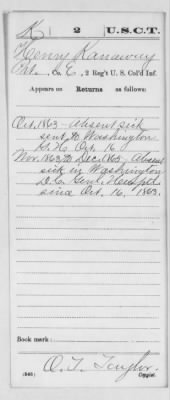 K 2 U.S.C.T.
Henry Kanaway
Pvt., Co. E, 2 Reg't U. S. Col'd Inf.
Appears on Returns as follows:
Oct. 1863 - Absent sick
sent to Washington
G. H. Oct. 16
Nov. 1863 to Dec. 1863 - Absent
sick in Washington
D.C. Genl. Hospital
since Oct. 16, 1863.
Book mark:
O. T. Taylor.
(546) Copyist.